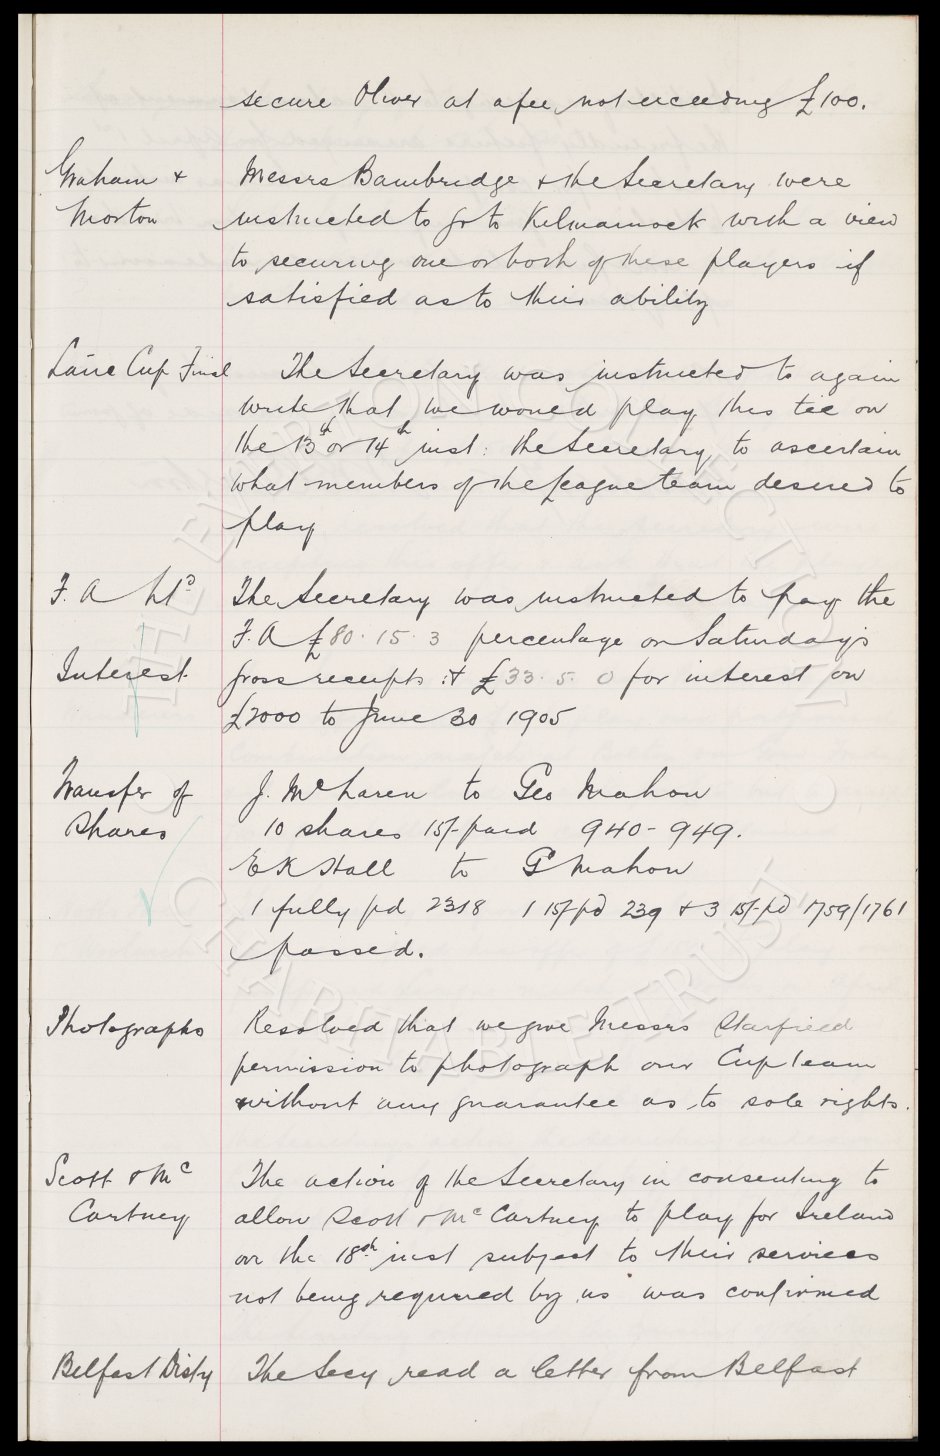 secure Oliver at a fee not exceeding £100.
Graham & Messrs Bambridge & the Secretary were
Morton instructed to go to Kilmarnock with a view
to securing one or both of these players if
satisfied as to their ability
Lanc Cup Final The Secretary was instructed to again
write that we would play this tie on
the 13th or 14th inst: the Secretary to ascertain
what members of the League team desired to
play
F. A Ltd The Secretary was instructed to pay the
F. A £80. 15. 3 percentage on Saturday's
Interest gross receipts & £33. 5. 0 for interest on
£2000 to June 30 1905
Transfer of J. McLaren to Geo Mahon
Shares 10 shares 15/- paid 940-949.
E K Hall to G Mahon
1 fully pd 2318 1 15/- pd 239 & 3 15/- pd 1759/1761
passed.
Photographs Resolved that we give Messrs Starfield
permission to photograph our Cup team
without any guarantee as to sole rights.
Scott & Mc The action of the Secretary in consenting to
Cartney allow Scott & McCartney to play for Ireland
on the 18th inst subject to their services
not being required by us was confirmed
Belfast Disty The Secy read a letter from Belfast
THE EVERTON COLLECTION
CHARITABLE TRUST